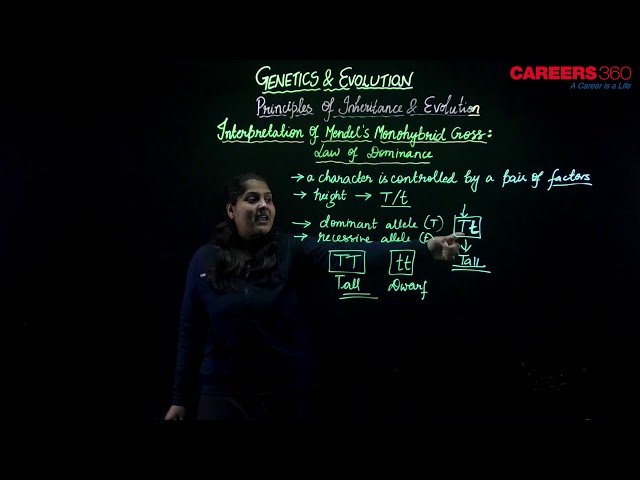 CAREERS360
A Career is a Life
GENETICS & EVOLUTION
Principles of Inheritance & Evolution
Interpretation of Mendel's Monohybrid Cross:
Law of Dominance
→ a character is controlled by a pair of factors
→ height → T/t
→ dominant allele (T)
→ recessive allele (t
Tt
Tall
TT tt
Tall Dwarf